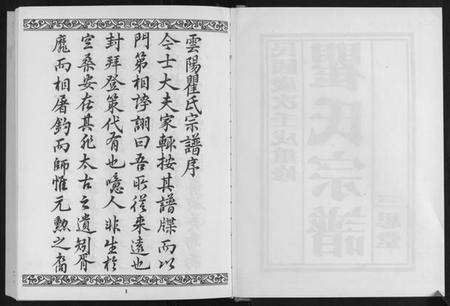 雲陽瞿氏宗譜序
今士大夫家輙按其譜牒而以
門第相誇詡曰吾所從來遠也
封拜登策代有也噫人非生於
空桑安在其死太古之遺胡胥
庶而相屠釣而師惟元勲之裔
1
瞿氏宗譜